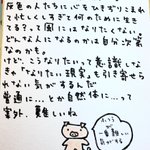 灰色の人たちに心をひきずりこまれ
て忙しくしすぎて何のために生き
てる？って風にはなりたくない
どんな人になるのかは自分次第
なのかも
けど、こうなりたいって意識しな
きゃ「なりたい現実」も引き寄せら
れない気がするんだ
普通に…とか自然体に…って
案外、難しいね